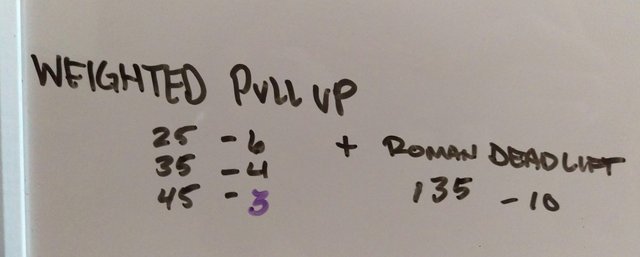 WEIGHTED PULL UP
25 - 6
35 - 4
45 - 3
+ ROMAN DEADLIFT
135 - 10